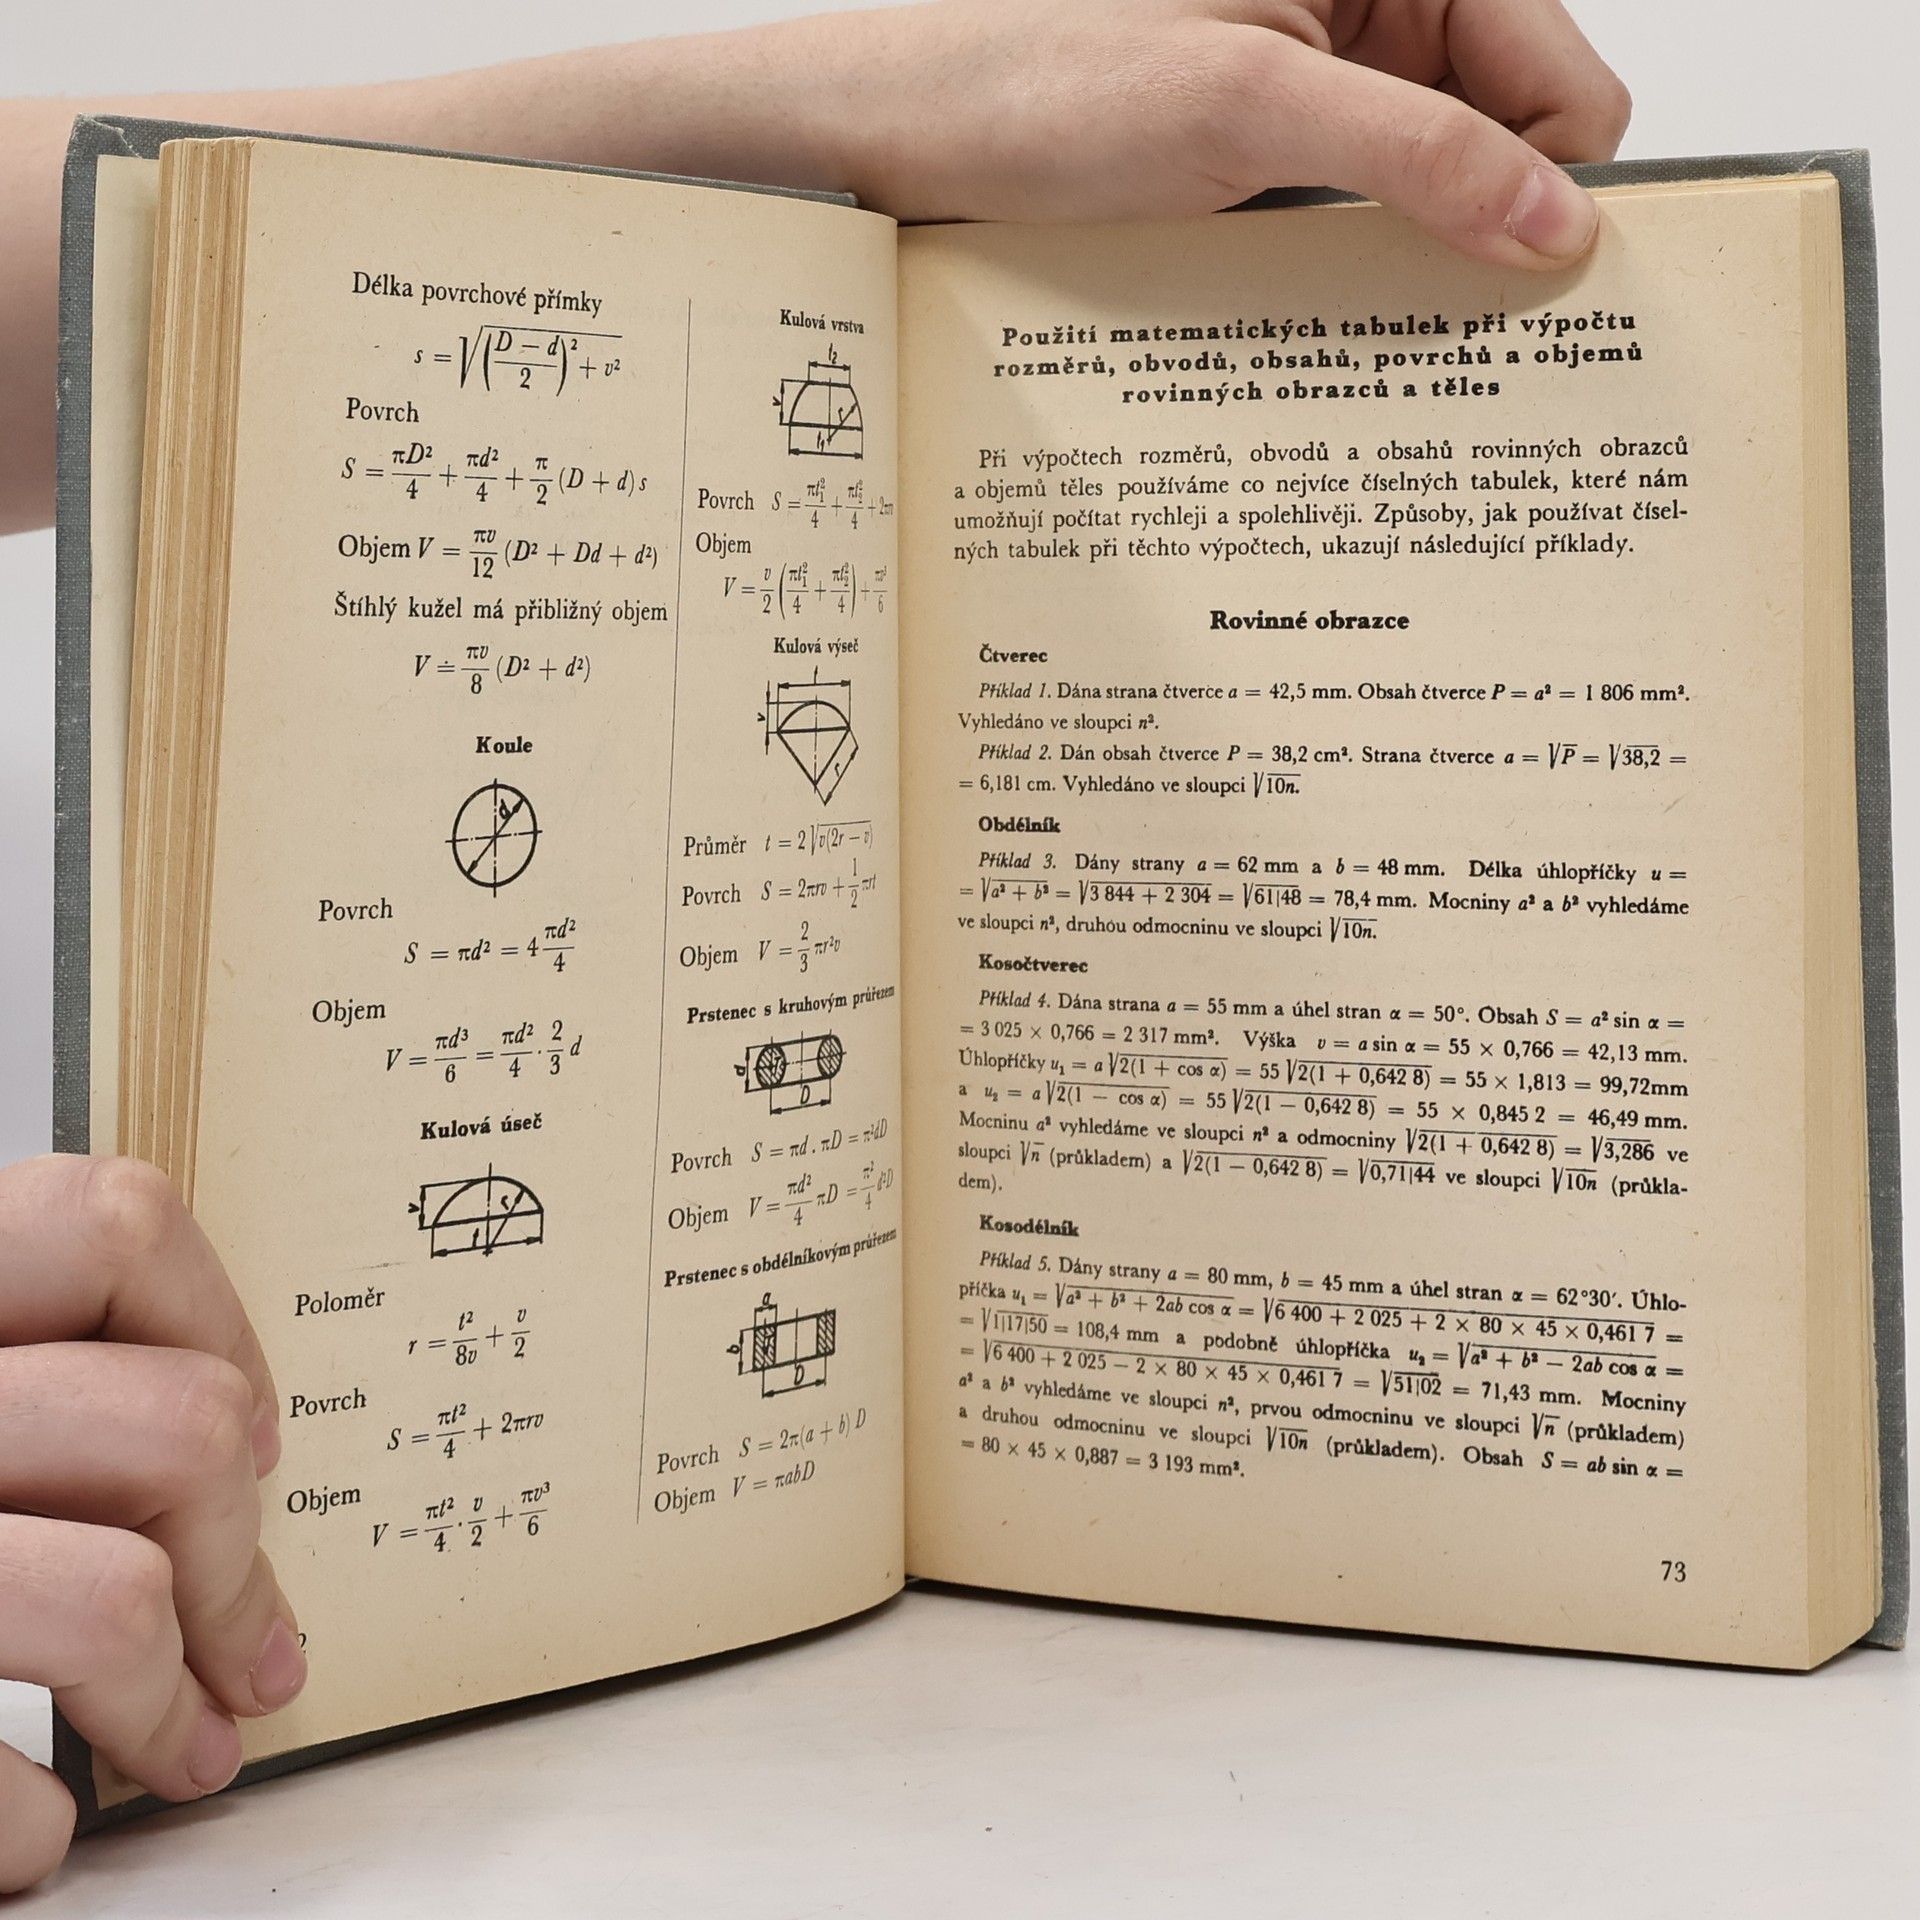 Délka povrchové přímky
s = √((D − d)/2)² + v²
Povrch
S = πD²/4 + πd²/4 + π/2 (D + d) s
Objem V = πv/12 (D² + Dd + d²)
Štíhlý kužel má přibližný objem
V ≐ πv/8 (D² + d²)
Koule
d
Povrch
S = πd² = 4 πd²/4
Objem
V = πd³/6 = πd²/4 · 2/3 d
Kulová úseč
v
r
t
Poloměr
r = t²/8v + v/2
Povrch
S = πt²/4 + 2πrv
Objem
V = πt²/4 · v/2 + πv³/6
2
Kulová vrstva
t₂
v
r
t₁
Povrch S = πt₁²/4 + πt₂²/4 + 2πrv
Objem
V = v/2 (πt₁²/4 + πt₂²/4) + πv³/6
Kulová výseč
t
v
r
Průměr t = 2 √v(2r − v)
Povrch S = 2πrv + 1/2 πrt
Objem V = 2/3 πr²v
Prstenec s kruhovým průřezem
d
D
Povrch S = πd . πD = π²dD
Objem V = πd²/4 πD = π²/4 d²D
Prstenec s obdélníkovým průřezem
a
b
D
Povrch S = 2π(a + b) D
Objem V = πabD
Použití matematických tabulek při výpočtu
rozměrů, obvodů, obsahů, povrchů a objemů
rovinných obrazců a těles
Při výpočtech rozměrů, obvodů a obsahů rovinných obrazců
a objemů těles používáme co nejvíce číselných tabulek, které nám
umožňují počítat rychleji a spolehlivěji. Způsoby, jak používat čísel-
ných tabulek při těchto výpočtech, ukazují následující příklady.
Rovinné obrazce
Čtverec
Příklad 1. Dána strana čtverce a = 42,5 mm. Obsah čtverce P = a² = 1 806 mm².
Vyhledáno ve sloupci n².
Příklad 2. Dán obsah čtverce P = 38,2 cm². Strana čtverce a = √P = √38,2 =
= 6,181 cm. Vyhledáno ve sloupci √10n.
Obdélník
Příklad 3. Dány strany a = 62 mm a b = 48 mm. Délka úhlopříčky u =
= √a² + b² = √3 844 + 2 304 = √61|48 = 78,4 mm. Mocniny a² a b² vyhledáme
ve sloupci n², druhou odmocninu ve sloupci √10n.
Kosočtverec
Příklad 4. Dána strana a = 55 mm a úhel stran α = 50°. Obsah S = a² sin α =
= 3 025 × 0,766 = 2 317 mm². Výška v = a sin α = 55 × 0,766 = 42,13 mm.
Úhlopříčky u₁ = a √2(1 + cos α) = 55 √2(1 + 0,642 8) = 55 × 1,813 = 99,72mm
a u₂ = a √2(1 − cos α) = 55 √2(1 − 0,642 8) = 55 × 0,845 2 = 46,49 mm.
Mocninu a² vyhledáme ve sloupci n² a odmocniny √2(1 + 0,642 8) = √3,286 ve
sloupci √n (průkladem) a √2(1 − 0,642 8) = √0,71|44 ve sloupci √10n (průkla-
dem).
Kosodélník
Příklad 5. Dány strany a = 80 mm, b = 45 mm a úhel stran α = 62°30′. Úhlo-
příčka u₁ = √a² + b² + 2ab cos α = √6 400 + 2 025 + 2 × 80 × 45 × 0,461 7 =
= √1|17|50 = 108,4 mm a podobně úhlopříčka u₂ = √a² + b² − 2ab cos α =
= √6 400 + 2 025 − 2 × 80 × 45 × 0,461 7 = √51|02 = 71,43 mm. Mocniny
a² a b² vyhledáme ve sloupci n², prvou odmocninu ve sloupci √n (průkladem)
a druhou odmocninu ve sloupci √10n (průkladem). Obsah S = ab sin α =
= 80 × 45 × 0,887 = 3 193 mm².
73